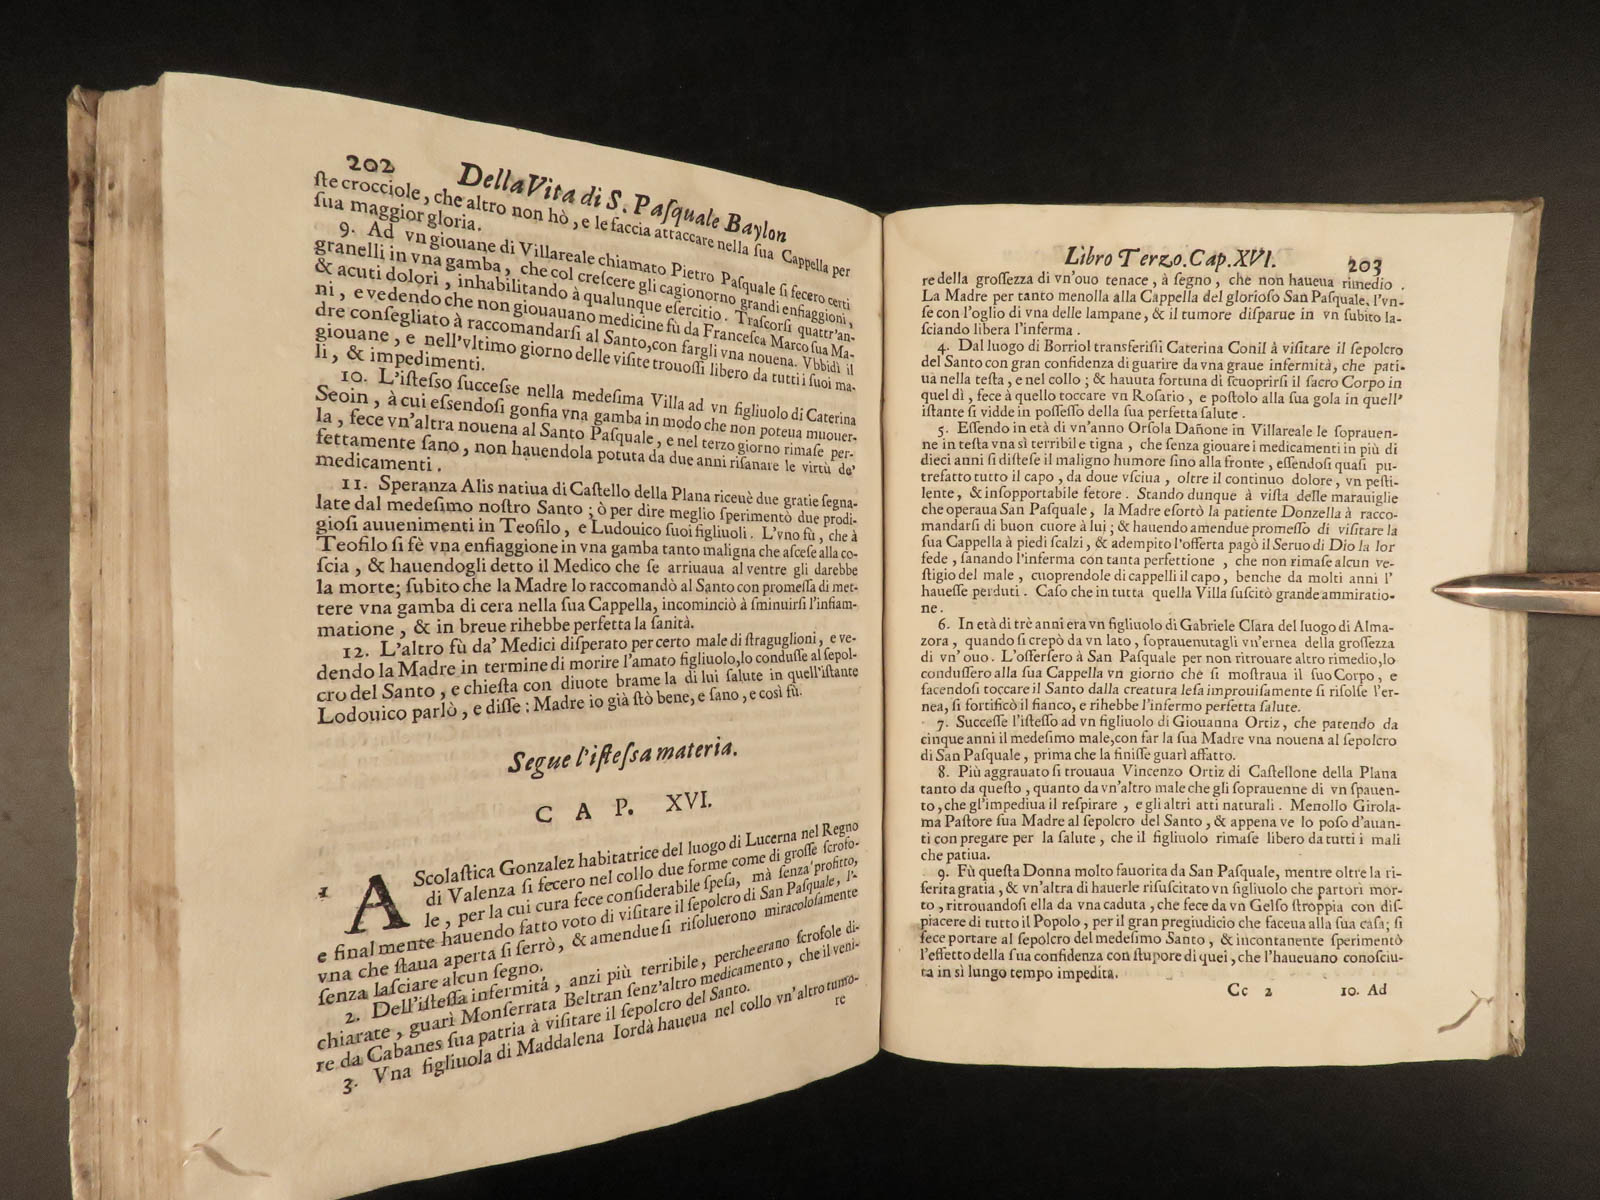 202
Della Vita di S. Paſquale Baylon
ſte crocciole, che altro non hò, e le faccia attaccare nella ſua Cappella per
ſua maggior gloria.
9. Ad vn giouane di Villareale chiamato Pietro Paſquale ſi fecero certi
granelli in vna gamba, che col creſcere gli cagionorno grandi enfiaggioni,
& acuti dolori, inhabilitando à qualunque eſercitio. Traſcorſi quattr'an-
ni, e vedendo che non giouauano medicine fù da Franceſca Marco ſua Ma-
dre conſegliato à raccomandarſi al Santo, con fargli vna nouena. Vbbidì il
giouane, e nell'vltimo giorno delle viſite trouoſſi libero da tutti i ſuoi ma-
li, & impedimenti.
10. L'iſteſſo ſucceſſe nella medeſima Villa ad vn figliuolo di Caterina
Seoin, à cui eſſendoſi gonfia vna gamba in modo che non poteua muouer-
la, fece vn'altra nouena al Santo Paſquale, e nel terzo giorno rimaſe per-
fettamente ſano, non hauendola potuta da due anni riſanare le virtù de'
medicamenti.
11. Speranza Alis natiua di Caſtello della Plana riceuè due gratie ſegna-
late dal medeſimo noſtro Santo; ò per dire meglio ſperimentò due prodi-
gioſi auuenimenti in Teofilo, e Ludouico ſuoi figliuoli. L'vno fù, che à
Teofilo ſi fè vna enfiaggione in vna gamba tanto maligna che aſceſe alla co-
ſcia, & hauendogli detto il Medico che ſe arriuaua al ventre gli darebbe
la morte; ſubito che la Madre lo raccomandò al Santo con promeſſa di met-
tere vna gamba di cera nella ſua Cappella, incominciò à ſminuirſi l'infiam-
matione, & in breue rihebbe perfetta la ſanità.
12. L'altro fù da' Medici diſperato per certo male di ſtraguglioni, e ve-
dendo la Madre in termine di morire l'amato figliuolo, lo conduſſe al ſepol-
cro del Santo, e chieſta con diuote brame la di lui ſalute in quell'iſtante
Lodouico parlò, e diſſe: Madre io già ſtò bene, e ſano, e così fù.
Segue l'iſteſſa materia.
CAP. XVI.
1 A Scolaſtica Gonzalez habitatrice del luogo di Lucerna nel Regno
di Valenza ſi fecero nel collo due forme come di groſſe ſcrofo-
le, per la cui cura fece conſiderabile ſpeſa, mà ſenza profitto,
e finalmente hauendo fatto voto di viſitare il ſepolcro di San Paſquale, l'-
vna che ſtaua aperta ſi ferrò, & amendue ſi riſoluerono miracoloſamente
ſenza laſciare alcun ſegno.
2. Dell'iſteſſa infermità, anzi più terribile, perche erano ſcrofole di-
chiarate, guarì Monſerrata Beltran ſenz'altro medicamento, che il veni-
re da Cabanes ſua patria à viſitare il ſepolcro del Santo.
3. Vna figliuola di Maddalena Iordà haueua nel collo vn'altro tumo-
re
Libro Terzo. Cap. XVI. 203
re della groſſezza di vn'ouo tenace, à ſegno, che non haueua rimedio.
La Madre per tanto menolla alla Cappella del glorioſo San Paſquale, l'vn-
ſe con l'oglio di vna delle lampane, & il tumore diſparue in vn ſubito la-
ſciando libera l'inferma.
4. Dal luogo di Borriol transferiſſi Caterina Conil à viſitare il ſepolcro
del Santo con gran confidenza di guarire da vna graue infermità, che pati-
ua nella teſta, e nel collo; & hauuta fortuna di ſcuoprirſi il ſacro Corpo in
quel dì, fece à quello toccare vn Roſario, e poſtolo alla ſua gola in quell'
iſtante ſi vidde in poſſeſſo della ſua perfetta ſalute.
5. Eſſendo in età di vn'anno Orſola Dañone in Villareale le ſoprauen-
ne in teſta vna sì terribile tigna, che ſenza giouare i medicamenti in più di
dieci anni ſi diſteſe il maligno humore ſino alla fronte, eſſendoſi quaſi pu-
trefatto tutto il capo, da doue vſciua, oltre il continuo dolore, vn peſti-
lente, & inſopportabile fetore. Stando dunque à viſta delle marauiglie
che operaua San Paſquale, la Madre eſortò la patiente Donzella à racco-
mandarſi di buon cuore à lui; & hauendo amendue promeſſo di viſitare la
ſua Cappella à piedi ſcalzi, & adempito l'offerta pagò il Seruo di Dio la lor
fede, ſanando l'inferma con tanta perfettione, che non rimaſe alcun ve-
ſtigio del male, cuoprendole di cappelli il capo, benche da molti anni l'
haueſſe perduti. Caſo che in tutta quella Villa ſuſcitò grande ammiratio-
ne.
6. In età di trè anni era vn figliuolo di Gabriele Clara del luogo di Alma-
zora, quando ſi crepò da vn lato, ſoprauenutagli vn'ernea della groſſezza
di vn'ouo. L'offerſero à San Paſquale per non ritrouare altro rimedio, lo
conduſſero alla ſua Cappella vn giorno che ſi moſtraua il ſuo Corpo, e
facendoſi toccare il Santo dalla creatura leſa improuiſamente ſi riſolſe l'er-
nea, ſi fortificò il fianco, e rihebbe l'infermo perfetta ſalute.
7. Succeſſe l'iſteſſo ad vn figliuolo di Giouanna Ortiz, che patendo da
cinque anni il medeſimo male, con far la ſua Madre vna nouena al ſepolcro
di San Paſquale, prima che la finiſſe guarì affatto.
8. Più aggrauato ſi trouaua Vincenzo Ortiz di Caſtellone della Plana
tanto da queſto, quanto da vn'altro male che gli ſoprauenne di vn ſpauen-
to, che gl'impediua il reſpirare, e gli altri atti naturali. Menollo Girola-
ma Paſtore ſua Madre al ſepolcro del Santo, & appena ve lo poſo d'auan-
ti con pregare per la ſalute, che il figliuolo rimaſe libero da tutti i mali
che patiua.
9. Fù queſta Donna molto fauorita da San Paſquale, mentre oltre la ri-
ferita gratia, & vn'altra di hauerle riſuſcitato vn figliuolo che partorì mor-
to, ritrouandoſi ella da vna caduta, che fece da vn Gelſo ſtroppia con diſ-
piacere di tutto il Popolo, per il gran pregiudicio che faceua alla ſua caſa; ſi
fece portare al ſepolcro del medeſimo Santo, & incontanente ſperimentò
l'effetto della ſua confidenza con ſtupore di quei, che l'haueuano conoſciu-
ta in sì lungo tempo impedita.
Cc 2 10. Ad